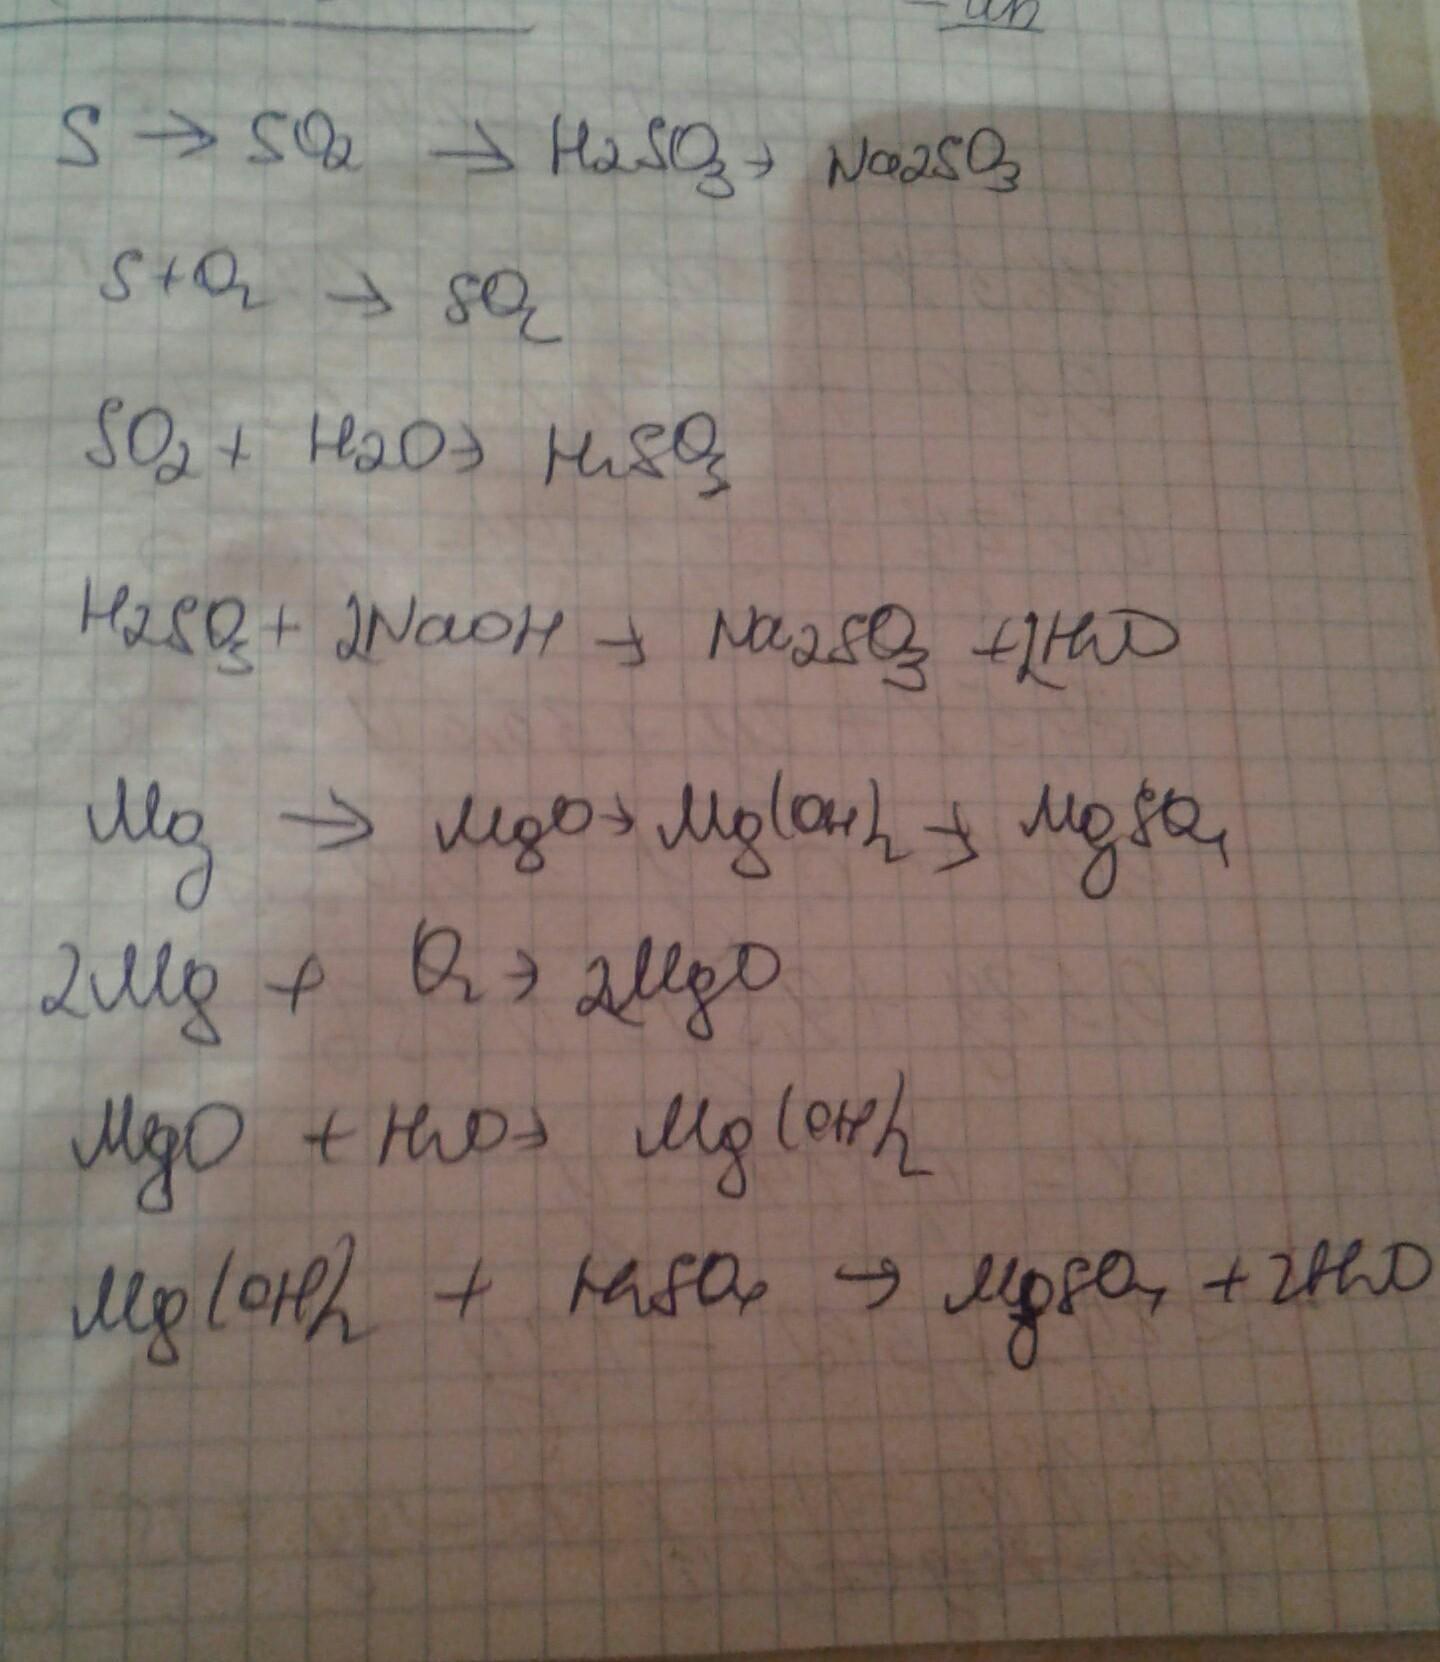 S → SO2 → H2SO3 → Na2SO3
S + O2 → SO2
SO2 + H2O → H2SO3
H2SO3 + 2NaOH → Na2SO3 + 2H2O
Mg → MgO → Mg(OH)2 → MgSO4
2Mg + O2 → 2MgO
MgO + H2O → Mg(OH)2
Mg(OH)2 + H2SO4 → MgSO4 + 2H2O